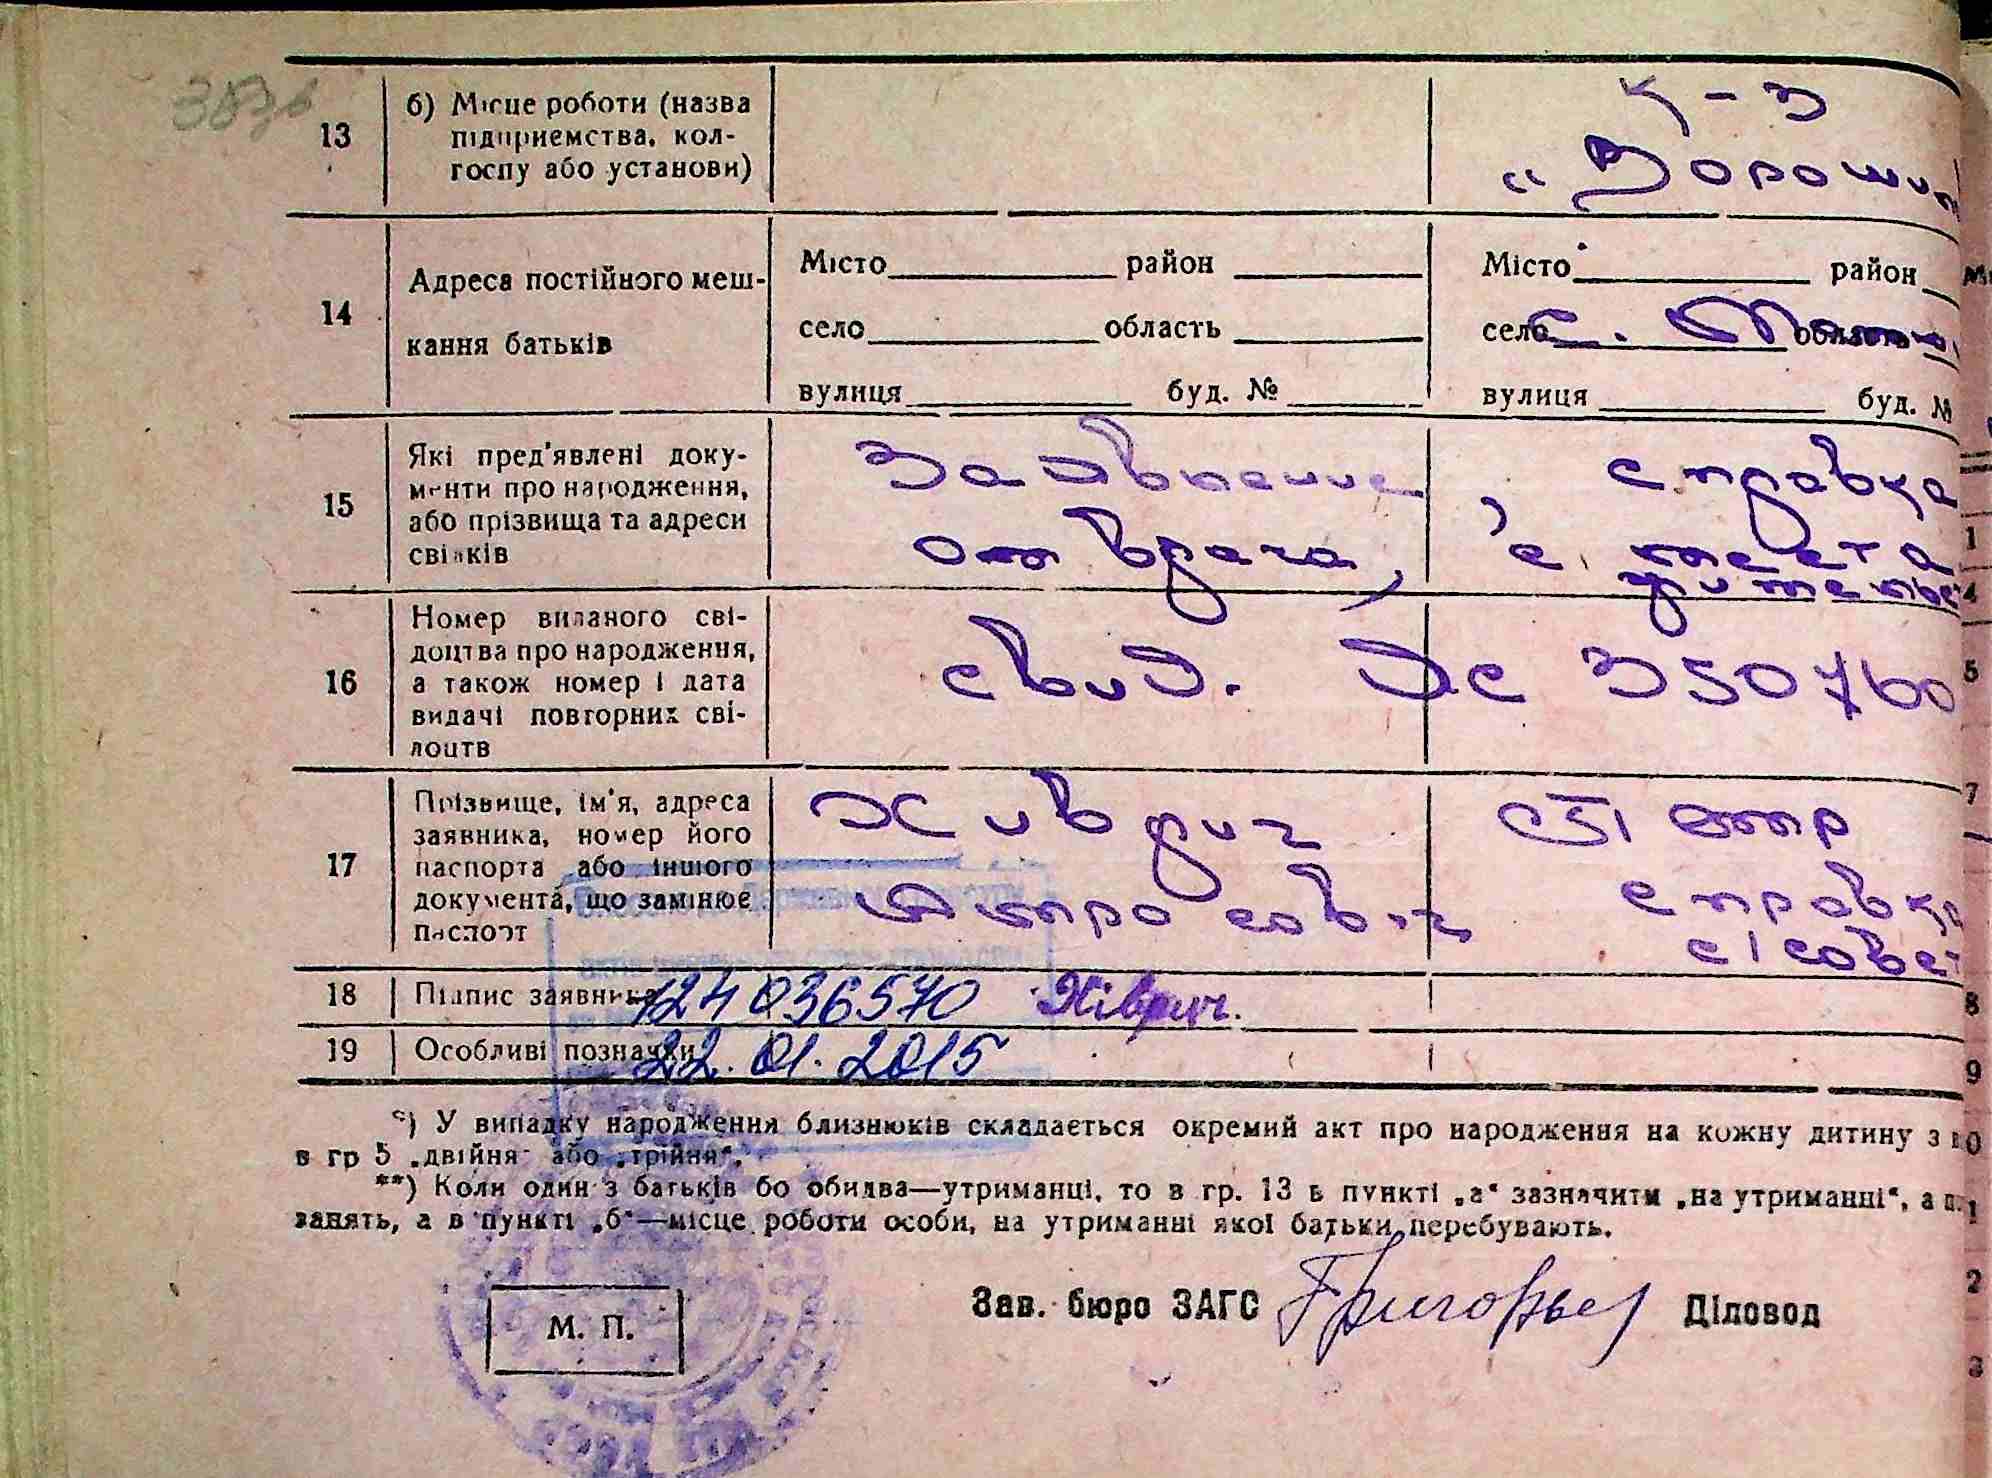 383в
13
б) Місце роботи (назва
підприємства, кол-
госпу або установи)
к-з
"Ворошил
14
Адреса постійного меш-
кання батьків
Місто район
село область
вулиця буд. №
Місто район
село с. область
вулиця буд. №
15
Які пред'явлені доку-
менти про народження,
або прізвища та адреси
свідків
Заявление
от врача,
, справка
с места
жительс
16
Номер виданого сві-
доцтва про народження,
а також номер і дата
видачі повторних сві-
доцтв
свид. 350760
17
Прізвище, ім'я, адреса
заявника, номер його
паспорта або іншого
документа, що замінює
паспорт
Хиврич
справка
с/совет
18
Підпис заявника
124036570 Хіврич.
19
Особливі позначки
22.01.2015
*) У випадку народження близнюків складається окремий акт про народження на кожну дитину з
в гр 5 „двійня" або „трійня".
**) Коли один з батьків бо обидва—утриманці, то в гр. 13 в пункті „а" зазначити „на утриманні", а
занять, а в пункті „б"—місце роботи особи, на утриманні якої батьки перебувають.
М. П.
Зав. бюро ЗАГС Григорьев Діловод